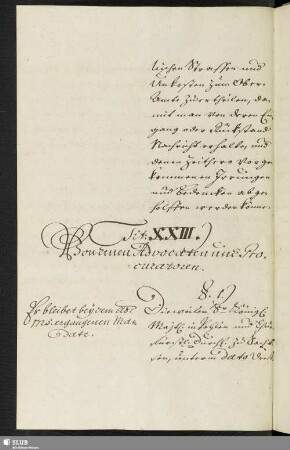 lichen Straffen und
Unkosten zum Ober-
Amte zuertheilen, da-
mit man von deren Ein-
gang oder Rückstand
Nachricht erhalte, und
denen Zeithero vorge-
kommenen Irrungen
und Bedencken abge-
holffen werden könne.
Tit. XXIII.
Von denen Advocaten und Pro-
curatoren.
Es bleibet bey dem ao.
1715. ergangenen Man-
date.
§. 1.)
Dieweilen Königl.
Majt. in Pohlen und Chur-
fürstl. Durchl. zu Sach-
sen, unterm dato
SLUB